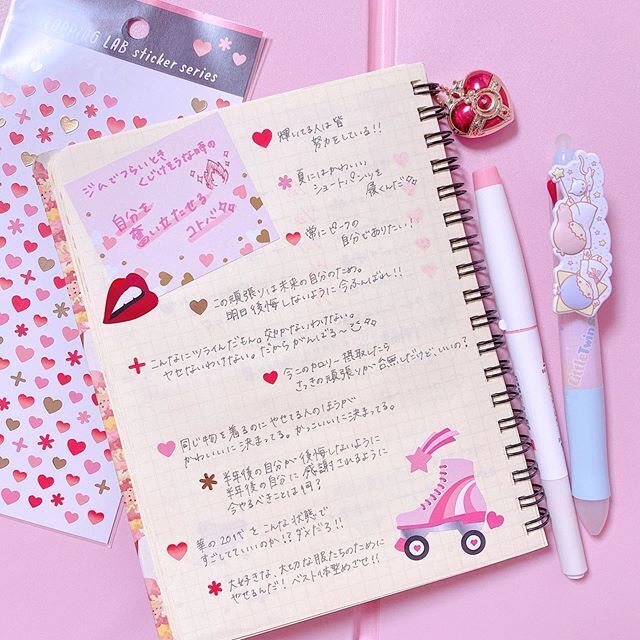 TOPPING LAB sticker series
ジムでつらいとき
くじけそうな時の
自分を
奮い立たせる
コトバ
輝いてる人は皆
努力をしている!!
夏にはかわいい
ショートパンツを
履くんだ
常にピークの
自分でありたい!
この頑張りは未来の自分のため。
明日後悔しないように今ふんばれ!!
こんなにツライんだもん。効かないわけない。
やせないわけない。だからがんばる〜
今このカロリー摂取したら
さっきの頑張りが台無しだけど、いいの?
同じ物を着るのにやせてる人のほうが
かわいいに決まってる。かっこいいに決まってる。
半年後の自分が後悔しないように
半年後の自分に感謝されるように
今やるべきことは何?
華の20代をこんな状態で
すごしてていいのか!?ダメだろ!!
大好きな、大切な服たちのために
やせるんだ!ベスト体型めざせ!!
LittleTwin